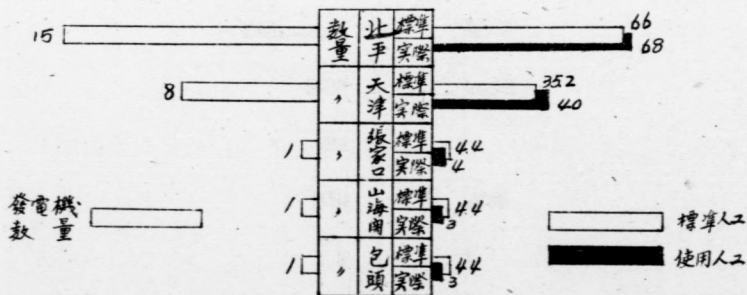 15 數量 北平 標準 66
実際 68
8 〃 天津 標準 35.2
実際 40
1 〃 張家口 標準 4.4
実際 4
1 〃 山海関 標準 4.4
実際 3
1 〃 包頭 標準 4.4
実際 3
發電機
數量
標準人工
使用人工